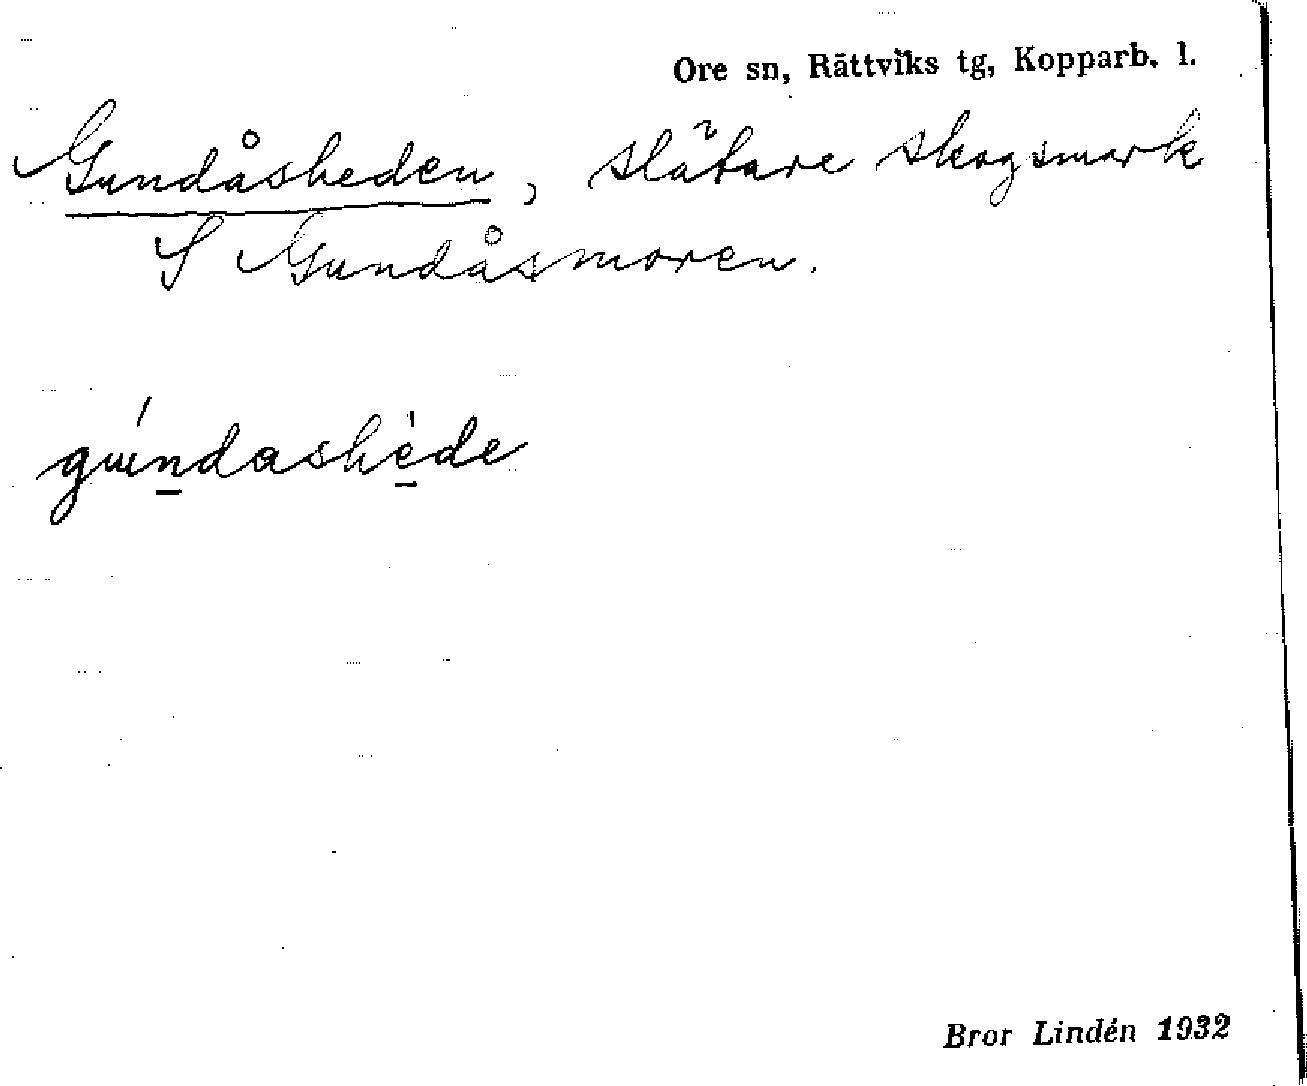 Ore sn, Rättviks tg, Kopparb. l.
Gundåsheden, slätare skogsmark
S Gundåsmoren.
gúndashède
Bror Lindén 1932